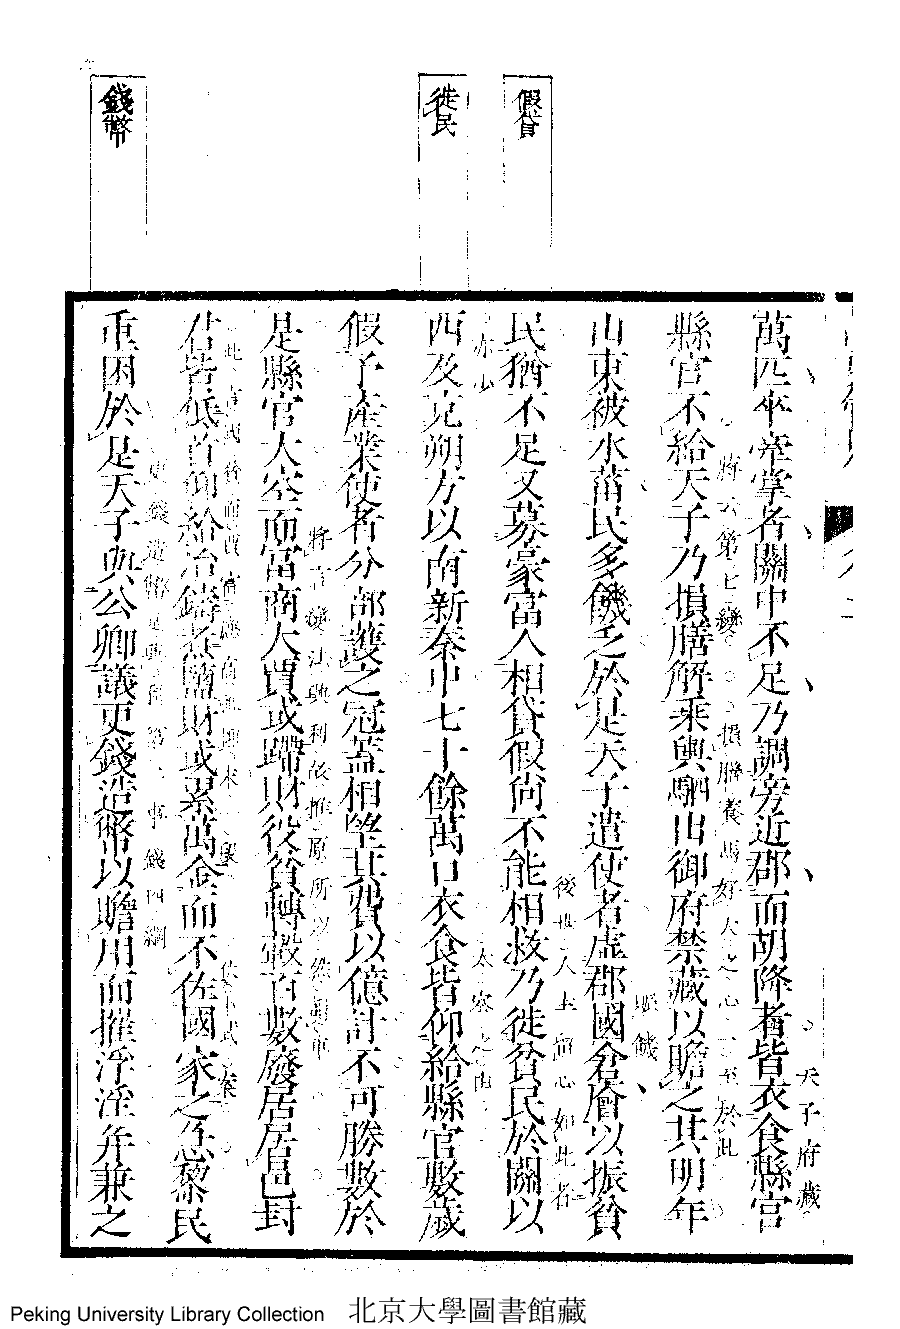 假貸
徙民
錢幣
萬匹卒牽掌者關中不足乃調旁近郡而胡降者皆衣食縣官
天子府藏
縣官不給天子乃損膳解乘輿駟出御府禁藏以贍之其明年
將六第七變 損膳養馬好大之心一至於此
山東被水菑民多饑乏於是天子遣使者虛郡國倉廥以振貧
賑饑
民猶不足又募豪富人相貸假尚不能相救乃徙貧民於關以
後世人主留心如此者
西及充朔方以南新秦中七十餘萬口衣食皆仰給縣官數歲
亦少 太寡之由
假予產業使者分部護之冠蓋相望其費以億計不可勝數於
是縣官大空而富商大賈或蹛財役貧轉轂百數廢居居邑封
將言變法興利故推原所以然
君皆低首仰給冶鑄煮鹽財或累萬金而不佐國家之急黎民
此言國
重困於是天子與公卿議更錢造幣以贍用而摧浮淫并兼之
更錢造幣是興利第 事錢四
Peking University Library Collection 北京大學圖書館藏